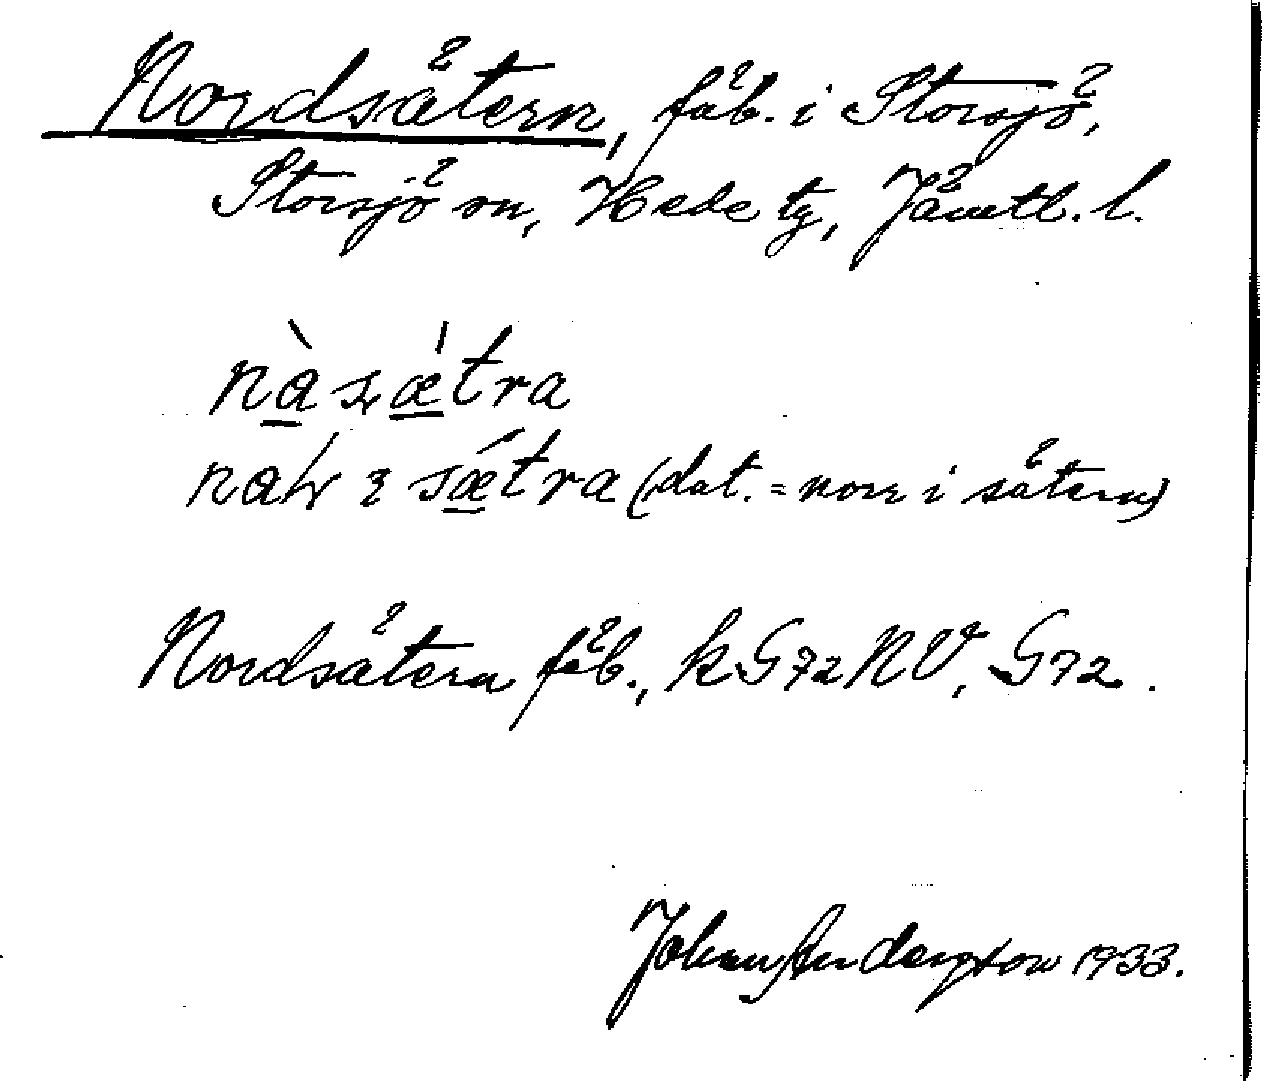 Nordsätern, fäb. i Storsjö,
Storsjö sn, Hede tg, Jämtl. l.
nàsǽtra
i sǽtra (dat. = norr i sätern)
Nordsätern fäb., kG72NV, G72.
Johan Anderson 1933.